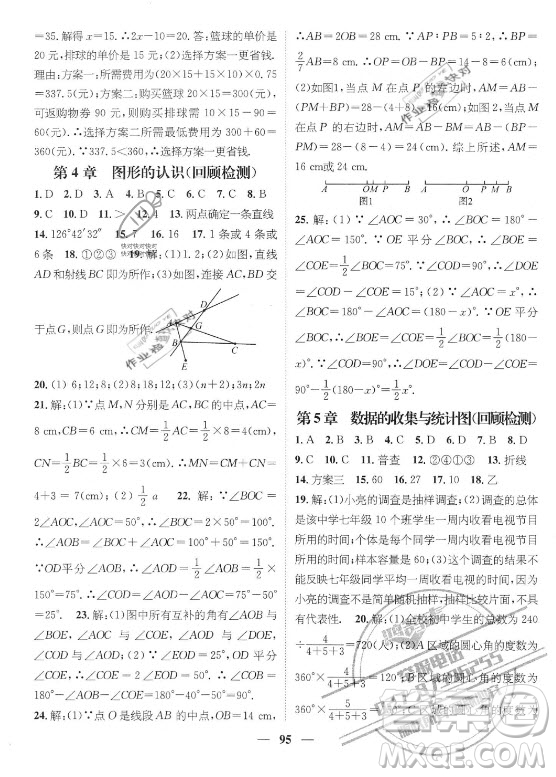 =35. 解得 x=10. 2x=20 答：篮球的单价是
20元，排球的单价是15元；(2)选择方案一更省钱.
理由：方案一：所需费用为(20×15+15×10)×0.75
=337.5(元)；方案二：购买篮球20×15=300(元)，
可返购物券90元，则买排球需10×15-90=
60(元). ∴选择方案二所需最少费用为300+60=
360(元). ∵337.5<360，∴选择方案一更省钱.
第4章 图形的认识(回顾检测)
1. D 2. A 3. D 4. B 5. C 6. C 7. C 8. B
9. C 10. D 11. > 12. 4 13. 两点确定一条直线
14. 126°42′32″ 15. 7 16. 16 17. 1条或4条或
6条 18. ①②③ 19. 解：(1)1.2；(2)如图，连接
AD和射线BC即为所作；(3)如图，连接BD，AC交
于点G，则点G即为所作.
D
A
G
B
C
E
20. (1)6；12；8；(2)8；12；6；(3)(n+2)；3n；2n
21. 解：(1)∵点M，N分别是AC，BC的中点，AC=
8 cm，CB=6 cm，∴CM=1/2AC=1/2×8=4(cm)，
CN=1/2BC=1/2×6=3(cm)，∴MN=CM+CN=
4+3=7(cm)；(2)1/2a 22. 解：∵∠AOB=50°+
50°=100°，OC平分∠AOB，∴∠AOC=1/2∠AOB=
1/2×100°=50°，∴∠BOC=∠AOC=50°.
∵OD平分∠AOC，∴∠AOD=1/2∠AOC=1/2×50°
=25°. 23. 解：(1)图中所有互补的角有∠AOB与
∠BOE，∠AOC与∠COE，∠AOD与∠DOE，
∠COD与∠AOD；(2)∵OB平分∠AOC，
∴∠AOC=2∠AOB=2×40°=80°，∴∠COE=
180°-∠AOC=180°-80°=100°.
24. 解：(1)∵点O是线段AB的中点，OB=14 cm，
∴AB=2OB=28 cm. ∵AP∶PB=5∶2，∴BP=
2/7AB=8 cm，∴OP=OB-BP=14-8=6(cm)；
(2)如图1，当点M在点P的左边时，AM=AB-
(PM+BP)=28-(4+8)=16(cm)；如图2，当点M
在点P的右边时，AM=AB-BM=AB-(BP-
PM)=28-(8-4)=24(cm). 综上所述，AM=
16 cm或24 cm.
A OM P B
A O P M B
图1 图2
25. 解：(1)∵∠AOC=30°，∴∠BOC=180°-
∠AOC=150°. ∵OE平分∠BOC，∴∠COE=
1/2∠BOC=75°. ∵∠COD=90°，∴∠DOE=∠COD-
∠COE=15°；(2)∵∠AOC=x°，∴∠BOC=180°-
∠AOC=(180-x)°. ∵OE平分∠BOC，∴∠COE=
1/2∠BOC=1/2(180-x)°. ∴∠DOE=∠COD-∠COE=
90°-1/2(180-x)°=1/2x°.
第5章 数据的收集与统计图(回顾检测)
1. A 2. B 3. C 4. B 5. B 6. D 7. B 8. D
9. C 10. C 11. 普查 12. ②④①③ 13. 折线
14. 方案三 15. 60 16. 27 17. 10 18. 乙
19. 解：(1)小亮的调查是抽样调查；(2)调查的总体
是该中学七年级10个班学生一周内收看电视节目
所用的时间；个体是每个同学一周内收看电视节目
所用的时间；样本容量是60；(3)这个调查的结果不
能反映七年级同学平均一周收看电视的时间，因
为小亮的抽样不是随机抽样，抽样比较片面，不具
有代表性. 20. 解：(1)全校初中学生的总数为240
÷4/(4+5+3)=720(人)；(2)A区域的圆心角的度数为
360°×4/(4+5+3)=120°；B区域的圆心角的度数为
360°×5/(4+5+3)
95